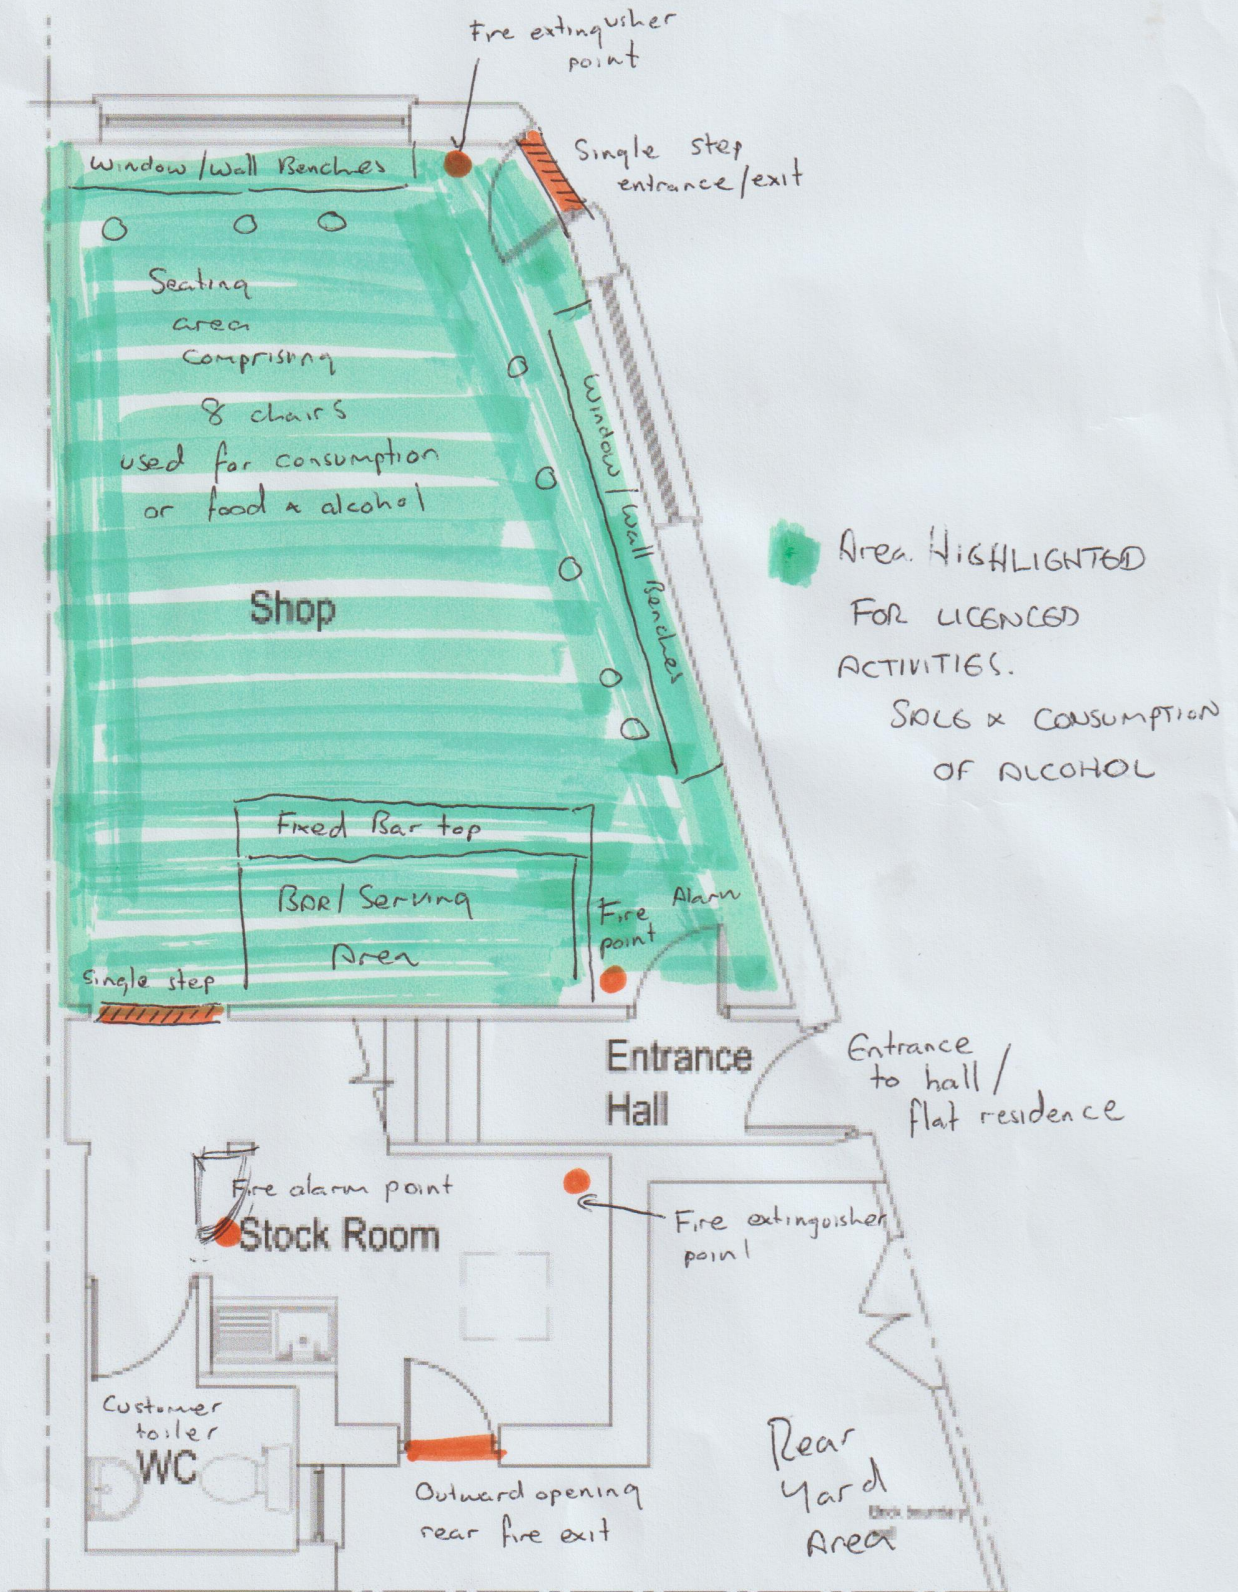 Fire extinguisher
point
Single step
entrance/exit
Window/Wall Benches
Seating
area
Comprising
8 chairs
used for consumption
or food & alcohol
Window/Wall Benches
Shop
Area HIGHLIGHTED
FOR LICENCED
ACTIVITIES.
SALE & CONSUMPTION
OF ALCOHOL
Fixed Bar top
BAR/Serving
Area
Fire Alarm
point
Single step
Entrance
Hall
Entrance
to hall/
flat residence
Fire alarm point
Stock Room
Fire extinguisher
point
Customer
toiler
WC
Outward opening
rear fire exit
Rear
Yard
Area